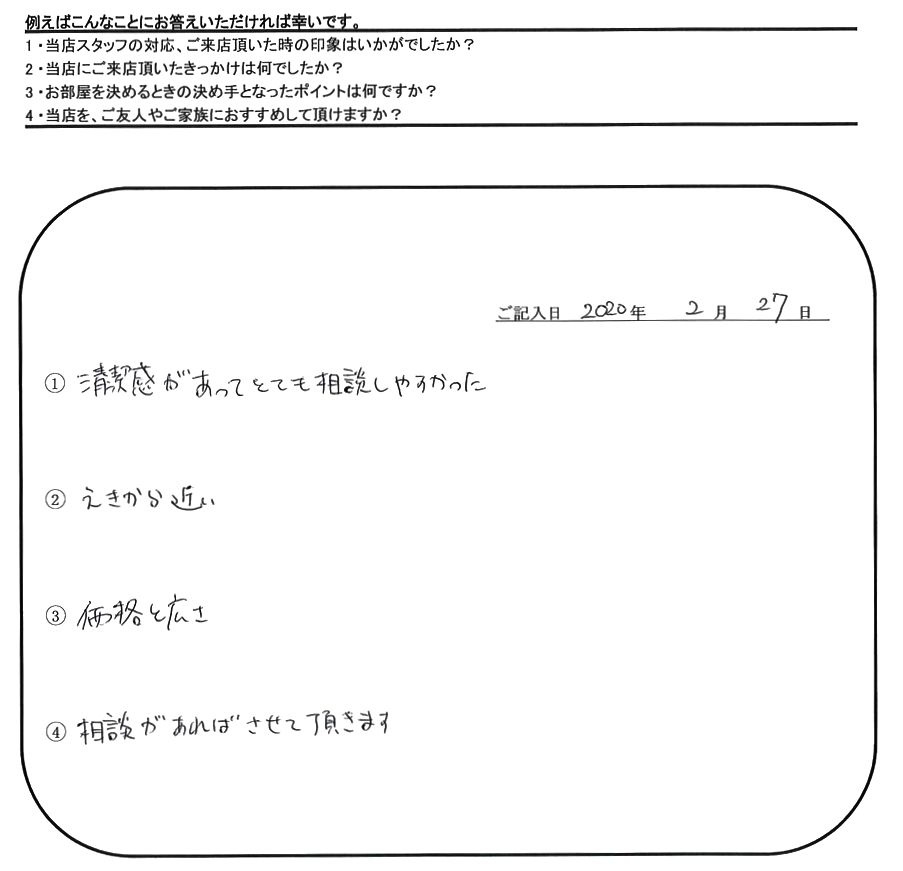 例えばこんなことにお答えいただければ幸いです。
1・当店スタッフの対応、ご来店頂いた時の印象はいかがでしたか？
2・当店にご来店頂いたきっかけは何でしたか？
3・お部屋を決めるときの決め手となったポイントは何ですか？
4・当店を、ご友人やご家族におすすめして頂けますか？
ご記入日 2020年 2月 27日
① 清潔感があってとても相談しやすかった
② えきから近い
③ 価格と広さ
④ 相談があればさせて頂きます